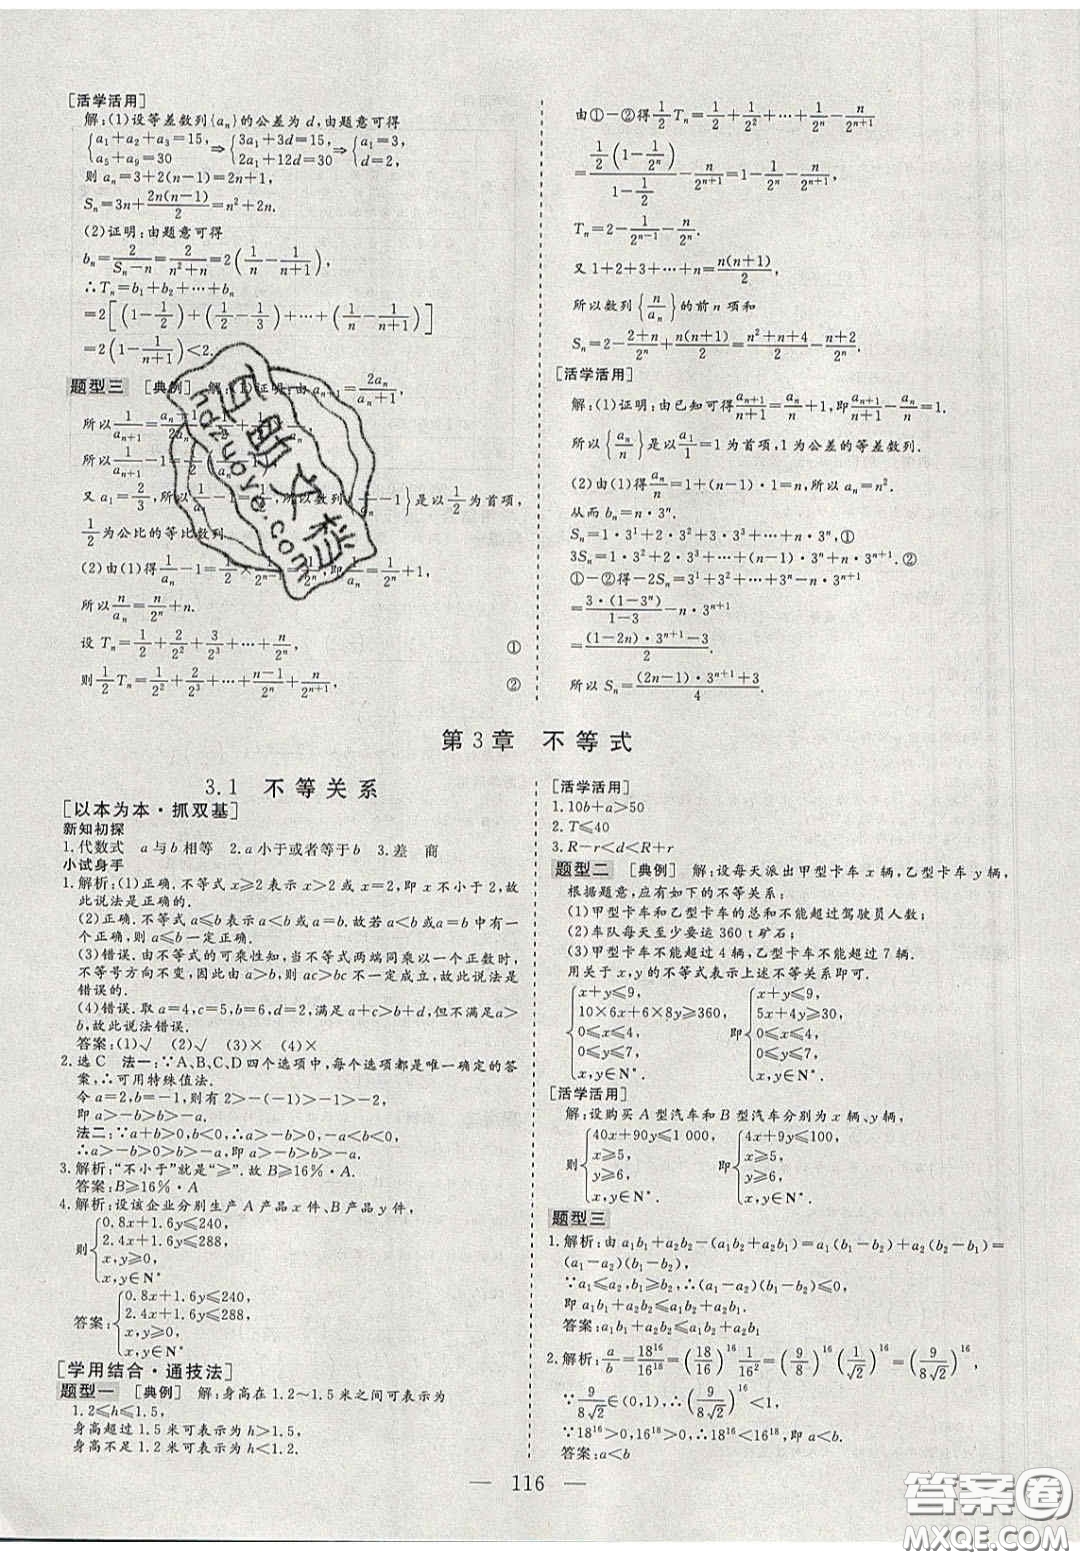 [活学活用]
解:(1)设等差数列{aₙ}的公差为d,由题意可得
{a₁+a₂+a₃=15, a₅+a₉=30 ⇒ {3a₁+3d=15, 2a₁+12d=30 ⇒ {a₁=3, d=2,
则 aₙ=3+2(n-1)=2n+1,
Sₙ=3n+2n(n-1)/2=n²+2n.
(2)证明:由题意可得
bₙ=2/(Sₙ-n)=2/(n²+n)=2(1/n-1/(n+1)),
∴Tₙ=b₁+b₂+⋯+bₙ
=2[(1-1/2)+(1/2-1/3)+⋯+(1/n-1/(n+1))]
=2(1-1/(n+1))<2.
题型三 [典例] 解:(1)证明:由aₙ₊₁=2aₙ/(aₙ+1),
所以 1/aₙ₊₁=(aₙ+1)/2aₙ=
所以 1/aₙ₊₁-1=1/2(
又 a₁=2/3,所以 所以数列{ -1}是以1/2为首项,
1/2为公比的等比数列
(2)由(1)得1/aₙ-1=1/2× 即 +1,
所以 n/aₙ=n/2ⁿ+n.
设 Tₙ=1/2+2/2²+3/2³+⋯+n/2ⁿ, ①
则 1/2Tₙ=1/2²+2/2³+⋯+(n-1)/2ⁿ+n/2ⁿ⁺¹, ②
由①-②得1/2Tₙ=1/2+1/2²+⋯+1/2ⁿ-n/2ⁿ⁺¹
=1/2(1-1/2ⁿ)/(1-1/2)-n/2ⁿ⁺¹=1-1/2ⁿ-n/2ⁿ⁺¹,
Tₙ=2-1/2ⁿ⁻¹-n/2ⁿ.
又 1+2+3+⋯+n=n(n+1)/2,
所以数列{n/aₙ}的前n项和
Sₙ=2-(2+n)/2ⁿ+n(n+1)/2=(n²+n+4)/2-(n+2)/2ⁿ.
[活学活用]
解:(1)证明:由已知可得aₙ₊₁/(n+1)=aₙ/n+1,即aₙ₊₁/(n+1)-aₙ/n=1.
所以{aₙ/n}是以a₁/1=1为首项,1为公差的等差数列.
(2)由(1)得aₙ/n=1+(n-1)·1=n,所以aₙ=n².
从而bₙ=n·3ⁿ.
Sₙ=1·3¹+2·3²+3·3³+⋯+n·3ⁿ,①
3Sₙ=1·3²+2·3³+⋯+(n-1)·3ⁿ+n·3ⁿ⁺¹.②
①-②得-2Sₙ=3¹+3²+⋯+3ⁿ-n·3ⁿ⁺¹
=3·(1-3ⁿ)/(1-3)-n·3ⁿ⁺¹
=((1-2n)·3ⁿ⁺¹-3)/2.
所以 Sₙ=((2n-1)·3ⁿ⁺¹+3)/4.
第3章 不等式
3.1 不等关系
[以本为本·抓双基]
新知初探
1.代数式 a与b相等 2.a小于或者等于b 3.差 商
小试身手
1.解析:(1)正确.不等式x≥2表示x>2或x=2,即x不小于2,故
此说法是正确的.
(2)正确.不等式a≤b表示a<b或a=b.故若a<b或a=b中
有一个正确,则a≤b一定正确.
(3)错误.由不等式的可乘性知,当不等式两端同乘以一个正数时,
不等号方向不变,因此由a>b,则ac>bc不一定成立,故此说法是
错误的.
(4)错误.取a=4,c=5,b=6,d=2,满足a+c>b+d,但不满足a>
b,故此说法错误.
答案:(1)√ (2)√ (3)× (4)×
2.选C 法一:∵A、B、C、D四个选项中,每个选项都是唯一确定的答
案,∴可用特殊值法.
令a=2,b=-1,则有2>-(-1)>-1>-2,
即a>-b>b>-a.
法二:∵a+b>0,b<0,∴a>-b>0,-a<b<0,
∴a>-b>0>b>-a,即a>-b>b>-a.
3.解析:“不小于”就是“≥”.故B≥16%·A.
答案:B≥16%·A
4.解析:设该企业分别生产A产品x件、B产品y件,
则{0.8x+1.6y≤240,
2.4x+1.6y≤288,
x,y≥0,
x,y∈N*
答案:{0.8x+1.6y≤240,
2.4x+1.6y≤288,
x,y≥0,
x,y∈N*
[学用结合·通技法]
题型一 [典例] 解:身高在1.2~1.5米之间可表示为
1.2≤h≤1.5,
身高超过1.5米可表示为h>1.5,
身高不足1.2米可表示为h<1.2.
[活学活用]
1.10b+a>50
2.T≤40
3.R-r<d<R+r
题型二 [典例] 解:设每天派出甲型卡车x辆,乙型卡车y辆,
根据题意,应有如下的不等关系:
(1)甲型卡车和乙型卡车的总和不能超过驾驶员人数;
(2)车队每天至少要运360t矿石;
(3)甲型卡车不能超过4辆,乙型卡车不能超过7辆.
用关于x,y的不等式表示上述不等关系即可.
{x+y≤9, 即{x+y≤9,
10×6x+6×8y≥360, 5x+4y≥30,
0≤x≤4, 0≤x≤4,
0≤y≤7, 0≤y≤7,
x,y∈N* x,y∈N*.
[活学活用]
解:设购买A型汽车和B型汽车分别为x辆、y辆,
则{40x+90y≤1 000, 即{4x+9y≤100,
x≥5, x≥5,
y≥6, y≥6,
x,y∈N*. x,y∈N*.
题型三
1.解析:由a₁b₁+a₂b₂-(a₁b₂+a₂b₁)=a₁(b₁-b₂)+a₂(b₂-b₁)=
(a₁-a₂)(b₁-b₂),
∵a₁≤a₂,b₁≥b₂,∴(a₁-a₂)(b₁-b₂)≤0,
即a₁b₁+a₂b₂≤a₁b₂+a₂b₁.
答案:a₁b₁+a₂b₂≤a₁b₂+a₂b₁
2.解析:a/b=18¹⁶/16¹⁸=(18/16)¹⁶1/16²=(9/8)¹⁶(1/√2)¹⁶=(9/8√2)¹⁶,
∵9/8√2∈(0,1),∴(9/8√2)¹⁶<1,
∵18¹⁶>0,16¹⁸>0,∴18¹⁶<16¹⁸,即a<b.
答案:a<b
— 116 —
百助文档
hdzuoye.com
答案圈
MXQE.COM